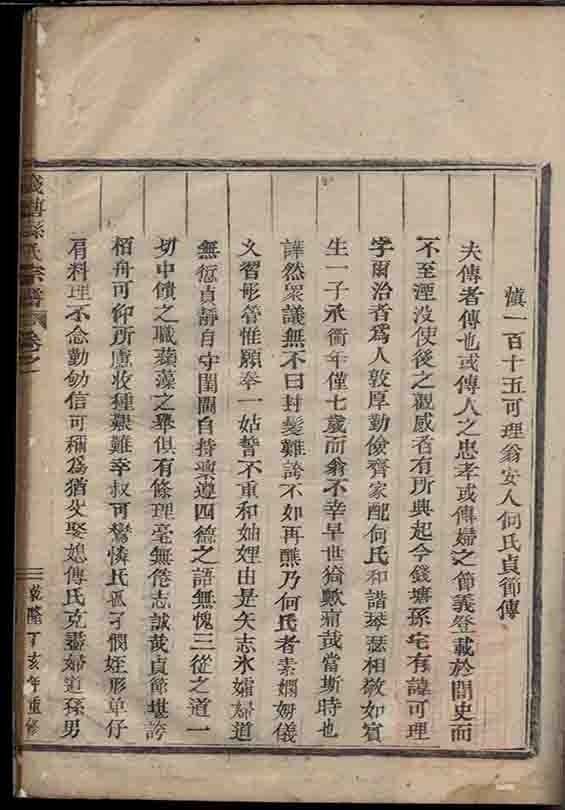 慎一百十五可理翁安人何氏貞節傳
夫傳者傳也或傳人之忠孝或傳婦之節義登載於閒史而
不至湮没使後之觀感者有所興起今錢塘孫宅有諱可理
字爾治者爲人敦厚勤儉齊家配何氏和諧琴瑟相敬如賓
生一子承衝年僅七歲而翁不幸早世猗歟痛㦲當斯時也
譁然衆議無不曰封髪難誇不如再醮乃何氏者素嫻姆儀
久習彤管惟願奉一姑誓不重和妯娌由是矢志氷孀婦道
無愆貞靜自守閨閫自持稟遵四德之語無愧三從之道一
切中饋之職蘋藻之舉俱有條理毫無倦志誠㦲貞節堪誇
栢舟可仰所慮妝種艱難幸叔可鸞憐氏孤子憫姪形单仔
肩料理不念勤劬信可稱爲猶父娶媳傅氏克盡婦道孫男
錢塘孫氏宗譜 卷之一
乾隆丁亥年重修